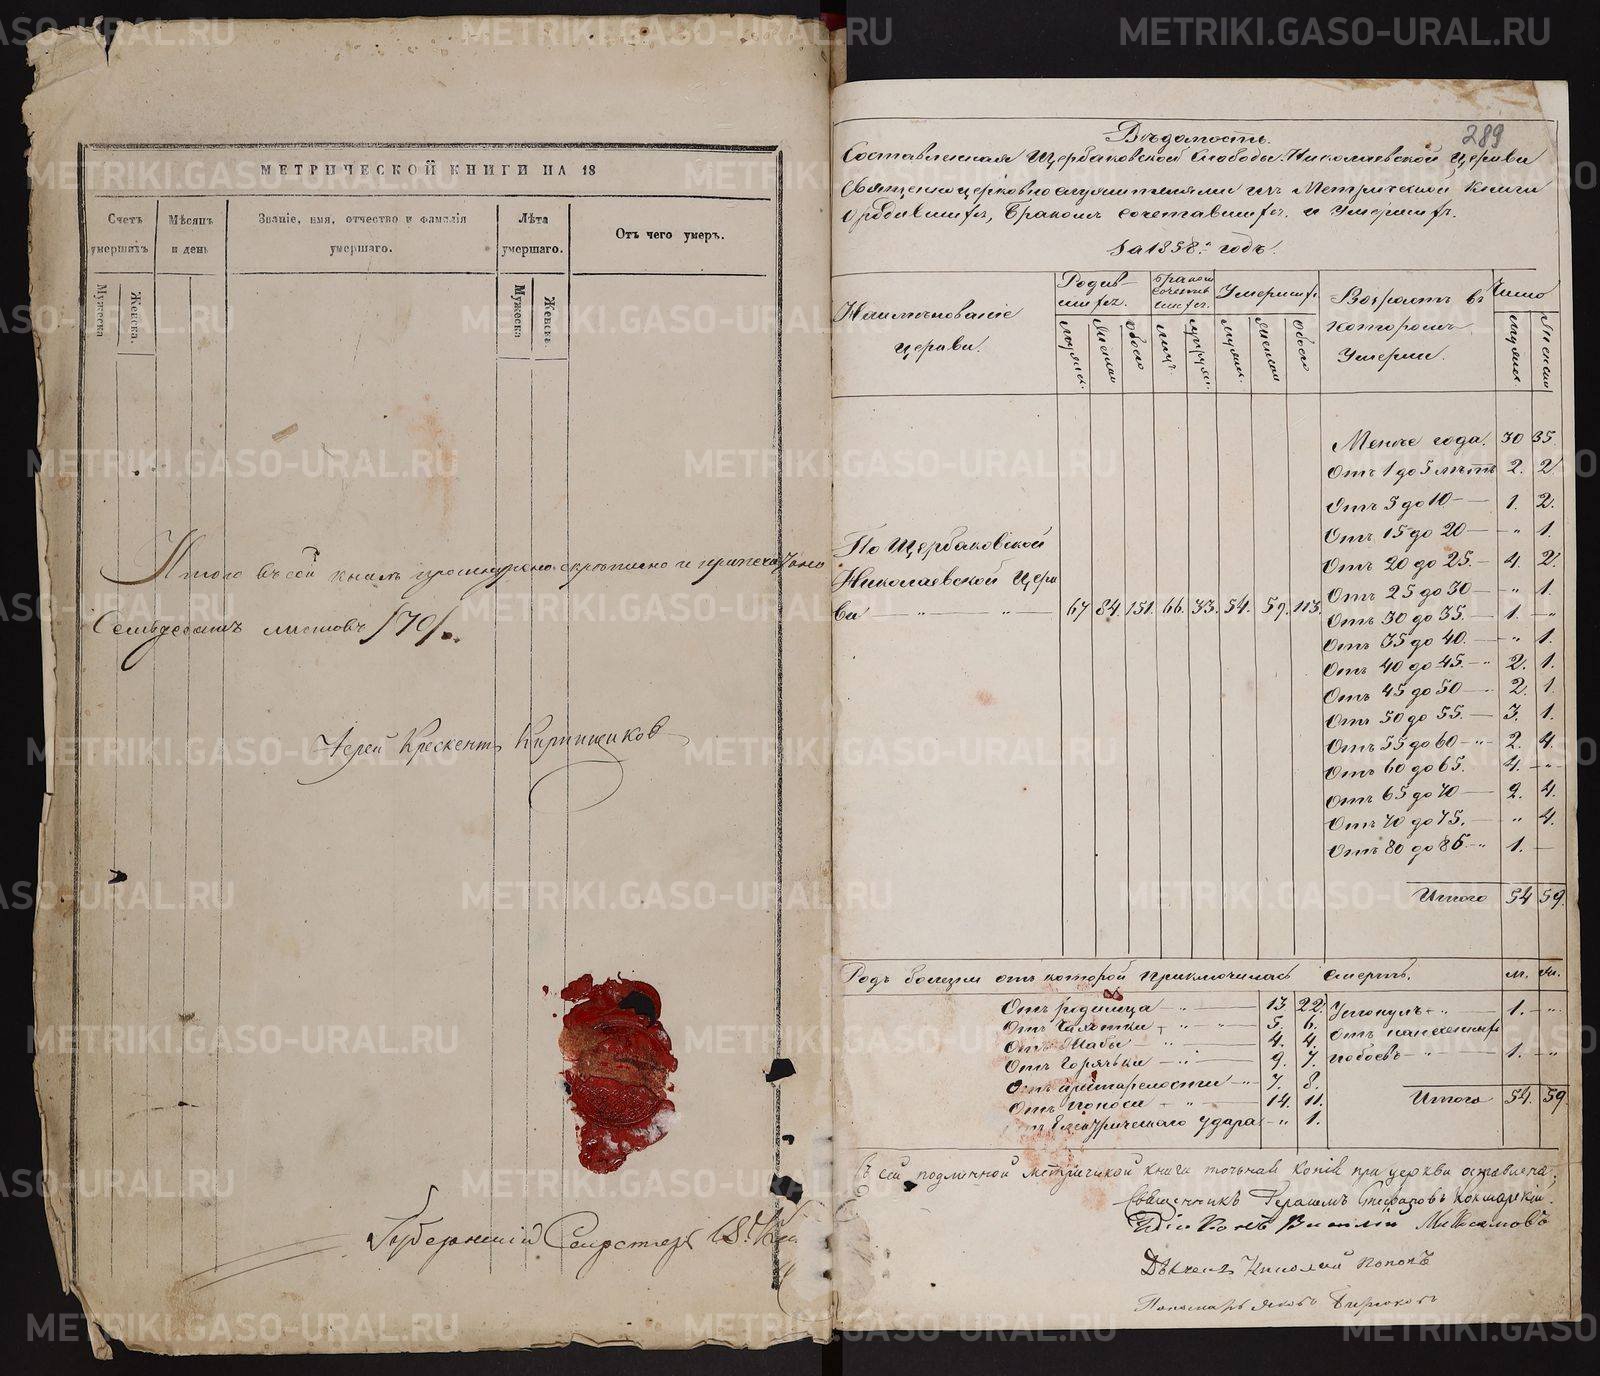 МЕТРИЧЕСКОЙ КНИГИ НА 18
Счетъ умершихъ
Мѣсяцъ и день
Званіе, имя, отчество и фамилія умершаго.
Лѣта умершаго.
Отъ чего умеръ.
Мужеска
Женска.
Мужеска
Женск.
Итого въ сей книгѣ прошнуровано скрѣплено и припечатано
Семьдесятъ листовъ /70/.
Іерей Крескентъ Кирпищиков
Губернскій Секретарь
289
Вѣдомость
Составленная Щербаковской Слободы Николаевской Церкви
Священноцерковнослужителями изъ Метрической Книги
о родившихся, Бракомъ сочетавшихся и Умершихъ.
За 1858й годъ.
Наименованіе церкви.
Родившихся.
Бракосочетавшихся.
Умершихъ.
Возрастъ въ которомъ Умерли.
Число
мужск.
женск.
обоего
лицъ.
мужск.
женск.
обоего
мужск.
женск.
По Щербаковской
Николаевской Церк
ви — „ — „ — 67 84 151. 66. 33. 54. 59. 113.
Менѣе года. 30 35.
Отъ 1 до 5 лѣтъ 2. 2
Отъ 5 до 10 — 1. 2.
Отъ 15 до 20 — „ 1.
Отъ 20 до 25. — 4. 2.
Отъ 25 до 30 — „ 1.
Отъ 30 до 35. — 1. — „
Отъ 35 до 40. — „ 1.
Отъ 40 до 45. — „ 2. 1.
Отъ 45 до 50 — 2. 1.
Отъ 50 до 55. — 3. 1.
Отъ 55 до 60 — „ 2. 4.
Отъ 60 до 65. 4. — „
Отъ 65 до 70 — 2. 4.
Отъ 70 до 75. — „ 4.
Отъ 80 до 85. — „ 1. —
Итого 54 59.
Родъ болезни отъ которой приключилась смерть. м. ж.
Отъ родимца — „ — 13. 22.
Отъ Чахотки — „ — „ — 5. 6.
Отъ Жабы — „ — 4. 4.
Отъ Горячки — „ — 9. 7.
Отъ престарелости — „ 7. 8.
Отъ поноса — „ — 14. 11.
Отъ Електрическаго удара — „ 1.
Утонулъ — „ — 1. — „
Отъ нанесенныхъ
побоевъ — „ — 1. — „
Итого 54. 59
Съ сей подлинной метрической книги точная копія при церкви оставлена;
Священникъ Герасимъ Стефановъ Кокшарскій.
Діаконъ Василій Максимовъ
Дьячекъ Николай Поповъ
Пономарь Яковъ Бирюковъ
METRIKI.GASO-URAL.RU